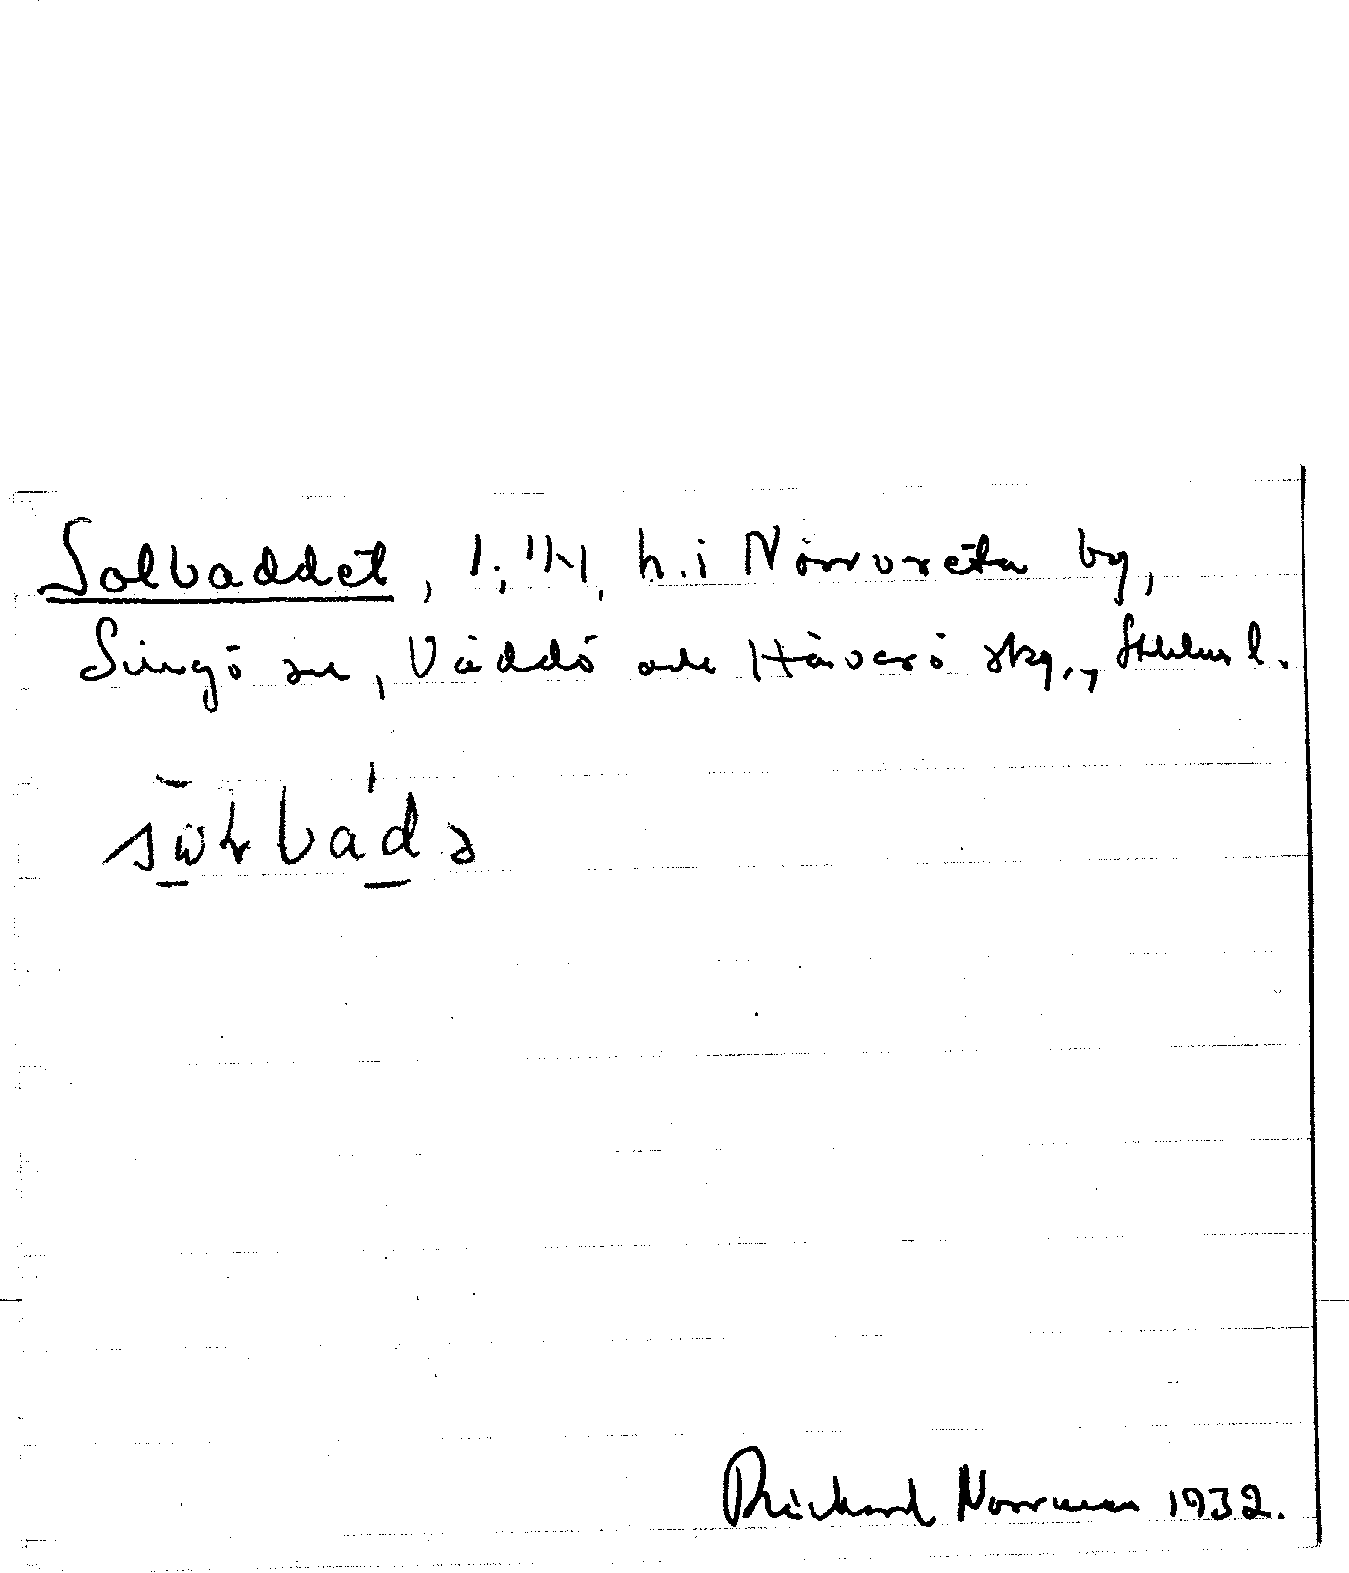 Solbaddet, h. i Norrvreta by,
Singö sn, Väddö och Häverö skg., Sthlms l.
Richard Norrman 1932.